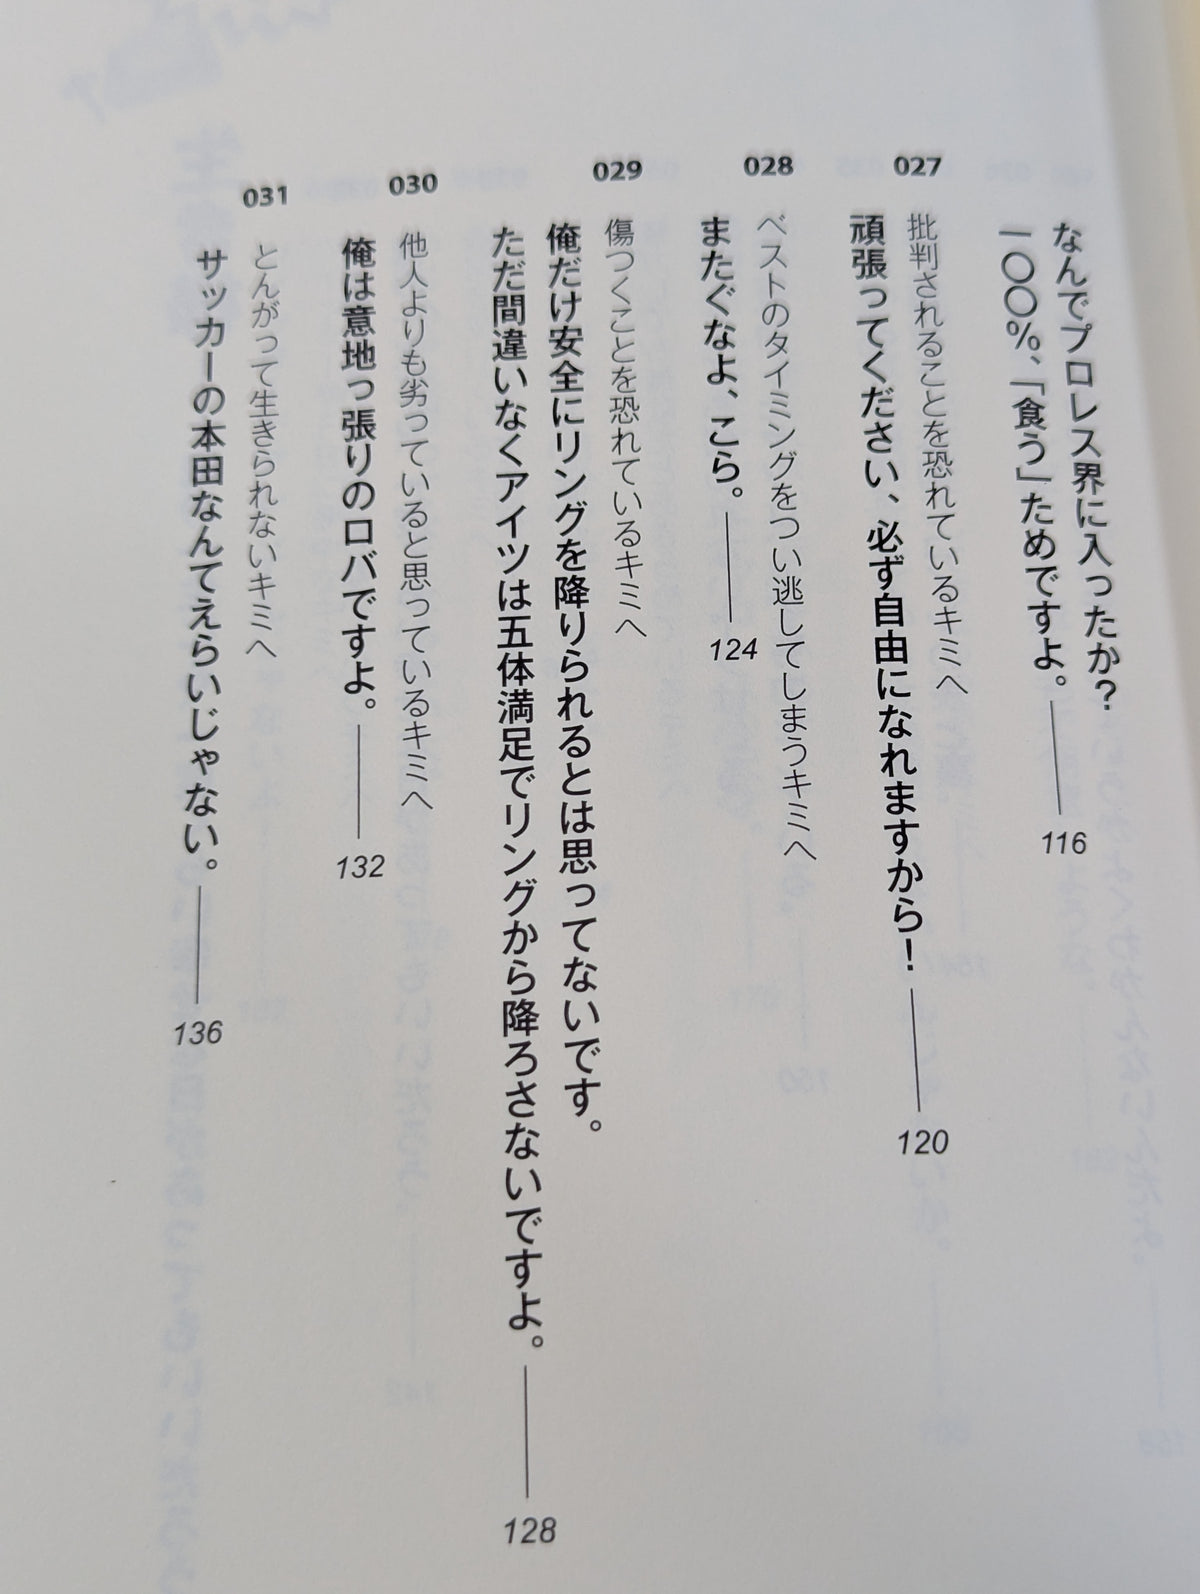 なんでプロレス界に入ったか?
一〇〇%、「食う」ためですよ。 116
027
批判されることを恐れているキミへ
頑張ってください、必ず自由になれますから! 120
028
ベストのタイミングをつい逃してしまうキミへ
またぐなよ、こら。 124
029
傷つくことを恐れているキミへ
俺だけ安全にリングを降りられるとは思ってないです。
ただ間違いなくアイツは五体満足でリングから降ろさないですよ。 128
030
他人よりも劣っていると思っているキミへ
俺は意地っ張りのロバですよ。 132
031
とんがって生きられないキミへ
サッカーの本田なんてえらいじゃない。 136